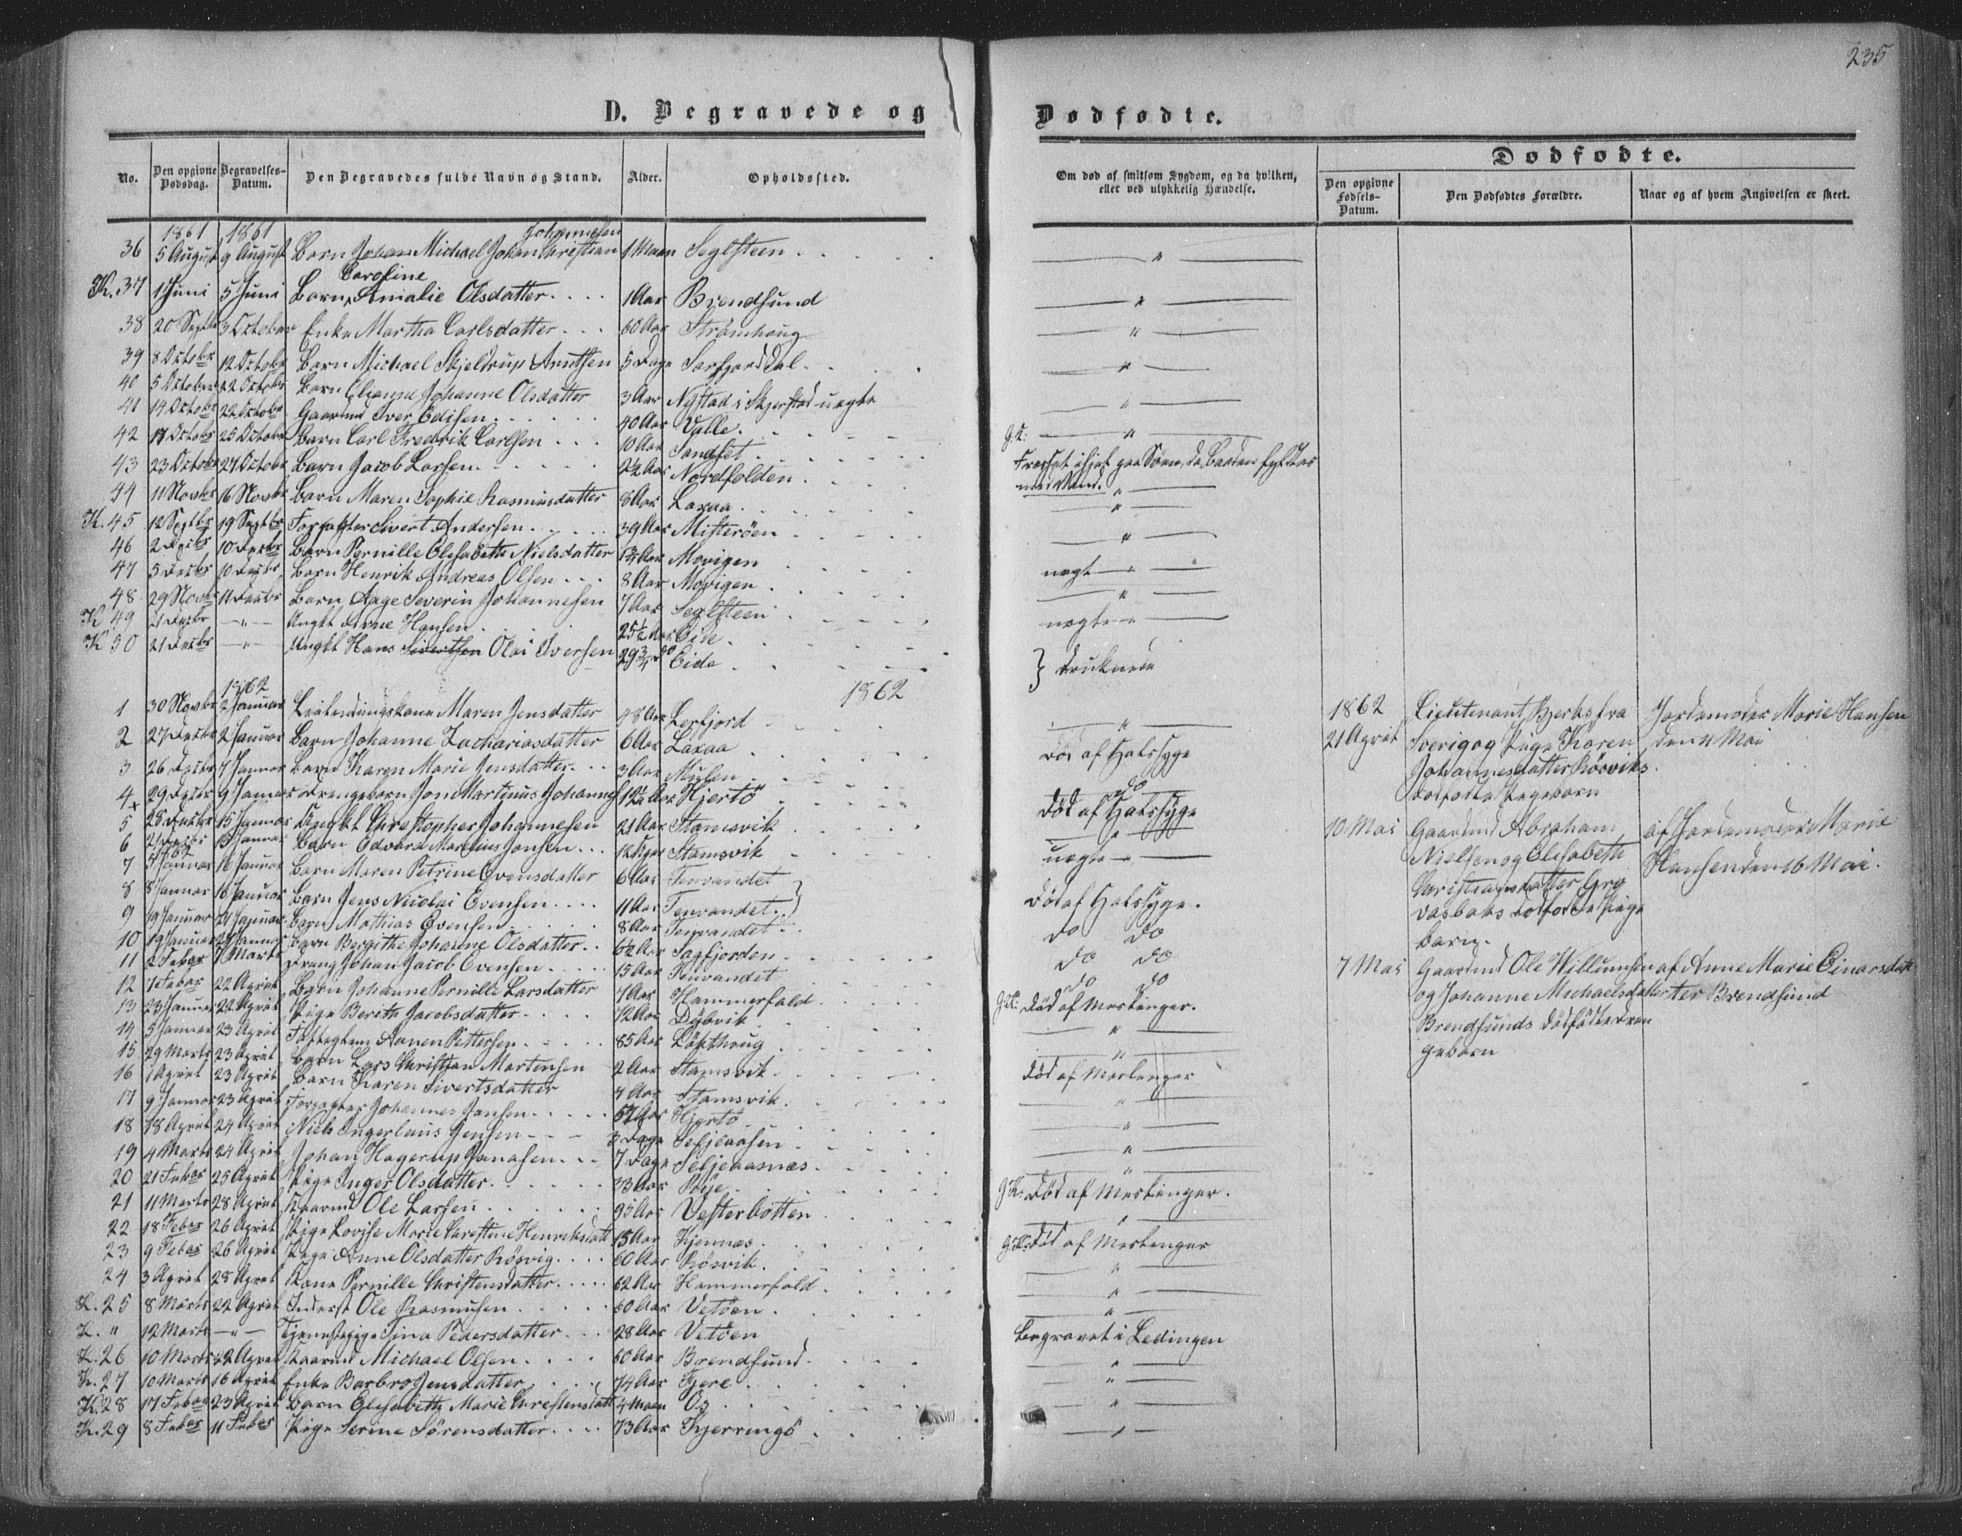 235
D. Begravede og Dødfødte.
No. Den opgivne Dødsdag. Begravelses-Datum. Den Begravedes fulde Navn og Stand. Alder. Opholdssted.
Om død af smitsom Sygdom, og da hvilken, eller ved ulykkelig Hændelse.
Dødfødte.
Den opgivne Fødsels-Datum. Den Dødfødtes Forældre. Naar og af hvem Angivelsen er skeet.
1861 1861 Johannesen
36 5 August 9 August Barn Johan Michael Johan Christian 1 Maan Seglsteen
Caroline
K. 37 1 Juni 5 Juni Barn Amalie Olsdatter 1 Aar Brendsund
38 20 Septbr 3 October Enke Martha Carlsdatter 60 Aar Strømhoug
39 8 Octobr 12 Octobr Barn Michael Skjeldrup Arntsen 5 Dage Sørfjorddal
40 5 October 22 Octobr Barn Johanne Olsdatter 3 Aar Nystad i Skjerstad
41 14 Octobr 22 Octobr Gaardmd Iver Edisen 40 Aar Valle
42 17 Octobr 25 Octobr Barn Carl Fredrik Carlsen 10 Aar Sandset
43 23 Octobr 27 Octobr Barn Jacob Larsen 2½ Aar Nordfolden
44 11 Novbr 16 Novbr Barn Maren Sophie Rasmusdatter 8 Aar Laxaa
K. 45 12 Septbr 19 Septbr Forpagter Sivert Andersen 39 Aar Misterøen
46 2 Decbr 10 Decbr Barn Pernille Elisabeth Nielsdatter Aar Movigen
47 5 Decbr 10 Decbr Barn Henrik Andreas Olsen 8 Aar Movigen
48 29 Novbr 11 Decbr Barn Aage Severin Johannesen 7 Aar Seglsteen
K 49 21 Decbr -"- Ungkl Arne Hansen 25½ Aar Eide
K 50 21 Decbr -"- Ungkl Hans Sivertsen Olai Iversen 29¾ do Eide
} druknede
1862
1862
1 30 Novbr 2 Januar Maren Jensdatter 48 Aar Lerfjord
2 27 Decbr 2 Januar Barn Johanne Zachariasdatter 6 Aar Laxaa
Død af Halssyge
3 26 Decbr 7 Januar Barn Karen Marie Jensdatter 3 Aar Mulen
do
4 29 Decbr 9 Januar Drengebarn Jon Martinus Johannes 1½ Aar Hjertø
Død af Halssyge
5 28 Decbr 15 Januar Ungkl Christopher Johannesen 21 Aar Stamsvik
6 21 Decbr 15 Januar Barn Edvard Martinus Jonsen Stamsvik
1862
7 5 Januar 16 Januar Barn Maren Petrine Evensdatter 6 Aar Tenvandet
Død af Halssyge.
8 8 Januar 16 Januar Barn Jens Nicolai Evensen 11 Aar Tenvandet
do do
9 19 Januar 27 Januar Barn Mathias Evensen 8 Aar Tenvandet
do do
10 19 Januar 27 Januar Barn Bergithe Johanne Olsdatter 6½ Aar Sagfjorden
do do
11 2 Febar 7 Marts Dreng Johan Jacob Evensen 15 Aar Tenvandet
12 1 Febar 22 April Barn Johanne Pernille Larsdatter 7 Aar Hammerfald
Død af Meslinger.
13 23 Januar 22 April Pige Berith Jacobsdatter 72 Aar Dybvik
14 5 Januar 23 April Aanen Pettersen 85 Aar Løkthoug
15 29 Marts 23 April Barn Lars Christian Mortensen 2 Aar Stamsvik
Død af Meslinger
16 1 April 23 April Barn Karen Sivertsdatter 4 Aar Stamsvik
17 9 Januar 23 April Forpagter Johannes Jonsen 57 Aar Hjertø
18 18 April 24 April Niels Ingerlaus Jensen 3 Dage
19 4 Marts 24 April Johan Hagerup Jonasen 7 Dage
20 21 Febar 25 April Pige Inger Olsdatter 33 Aar
Død af Meslinger.
21 11 Marts 28 April Gaardmd Ole Larsen 35 Aar Vesterbotten
22 18 Febar 26 April Pige Lovise Marie Christine Henriksdatt 15 Aar Kjennes
Død af Meslinger
23 9 Febar 26 April Pige Anne Olsdatter Røsvig 60 Aar Røsvik
24 3 April 28 April Kone Pernille Christensdatter 62 Aar Hammerfald
K. 25 8 Marts 22 April Inderst Ole Rasmusen 60 Aar Vetøen
K. " 12 Marts -"- Tjenestepige Sina Pedersdatter 28 Aar Vetøen
begravet i Lødingen
K. 26 10 Marts 22 April Gaardmd Michael Olsen 60 Aar Brendsund
K. 27 10 Marts 16 April Enke Barbro Jensdatter 74 Aar Fjere
K. 28 17 Febar 23 April Barn Elisabeth Marie Christensdatt 4 Maan Os
K. 29 8 Febar 11 Febar Pige Serine Sørensdatter 73 Aar Kjerringø
1862
21 April Lieutenant Bjerks fra Sverig og Pige Karen Johannesdatter Røsviks dødfødte Pigebarn
Jordemoder Marie Hansen den 11 Mai
10 Mai Gaardmd Abraham Nielsen og Elisabeth Christiansdatter dødfødte Pige barn.
af Jordemoder Marie Hansen den 16 Mai.
7 Mai Gaardmd Ole Willumsen og Johanne Michaelsdatter Brendsunds dødfødte Drengebarn
af Anne Marie Einarsdatter Brendsund